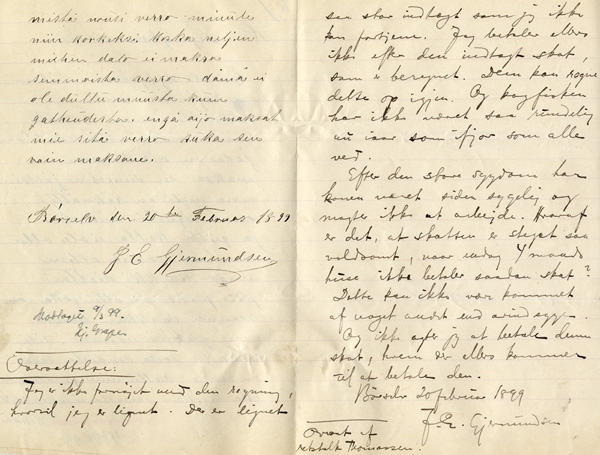 mistä nousi verro minule
niin korkeksi. Koska neljen
michen dalo ei maksa
semmoista verro dämä ei
ole dullu muusta kuin
gathendesta. engä aijo maksat
mie sitä verro kuka sen
vain maksane.
Börselv den 20de Februar 1899
J E Gjermundsen
Modtaget 9/3 99.
Oversættelse:
Jeg er ikke fornöyet med den regning,
hvortil jeg er lignet. Der er lignet
saa stor indtægt som jeg ikke
kan fortjene. Jeg betaler ellers
ikke efter den indtægt skat,
som er beregnet. Dem kan regne
dette op igjen. Og kogfisken
har ikke været saa rundelig
nu iaar som ifjor som alle
ved.
Efter den store sygdom har
konen været siden sygelig og
magter ikke at arbeide. Hvoraf
er det, at skatten er steget saa
voldsomt, naar endog 4 mands
huse ikke betaler saadan skat?
Dette kan ikke være kommet
af noget andet end avindsyge.
Og ikke agter jeg at betale denne
skat, hvem der ellers kommer
til at betale den.
Börselv 20 februar 1899
J. E. Gjermundsen
Oversat af
Thomassen.